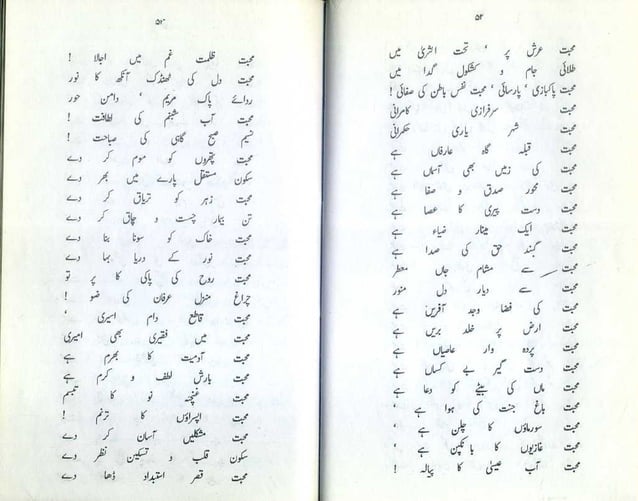 ۵۲
محبت عرش پر ‘ تحت الثریٰ میں
طلائی جام و کشکول گدا میں
محبت پاکبازی ‘ پارسائی ‘ محبت نفس باطن کی صفائی !
محبت سرفرازی کامرانی
محبت شہر یاری حکمرانی
محبت قبلہ گاہ عارفاں ہے
محبت کی زمیں بھی آسماں ہے
محبت محور صدق و صفا ہے
محبت دست پیری کا عصا ہے
محبت ایک مینار ضیاء ہے
محبت گنبد حق کی صدا ہے
محبت سے مشام جاں معطر
محبت سے دیار دل منور
محبت کی فضا وجد آفریں ہے
محبت ارض پر خلد بریں ہے
محبت پردہ وار عاصیاں ہے
محبت دست گیر بے کساں ہے
محبت ماں کی بیٹے کو دعا ہے
محبت باغ جنت کی ہوا ہے ‘
محبت سورماؤں کا چلن ہے ‘
محبت غازیوں کا بانکپن ہے ‘
محبت آب عیسیٰ کا پیالہ !
۵۳
محبت ظلمت غم میں اجالا !
محبت دل کی ٹھنڈک آنکھ کا نور
ردائے پاک مریم ‘ دامن حور
محبت آب شبنم کی لطافت !
نسیم صبح گاہی کی صباحت !
محبت پتھروں کو موم کر دے
سکون مستقل پارے میں بھر دے
محبت زہر کو تریاق کر دے
تن بیمار چست و چاق کر دے
محبت خاک کو سونا بنا دے
محبت نور کے دریا بہا دے
محبت روح کی پاکی کا پر تو
چراغ منزل عرفان کی ضو !
محبت قاطع دام اسیری ‘
محبت میں فقیری بھی امیری
محبت آدمیت کا بھرم ہے
محبت بارش لطف و کرم ہے
محبت غنچہ نو کا تبسم
محبت اپسراؤں کا ترنم !
محبت مشکلیں آسان کر دے
سکون قلب و تسکین نظر دے
محبت قصر استبداد ڈھا دے